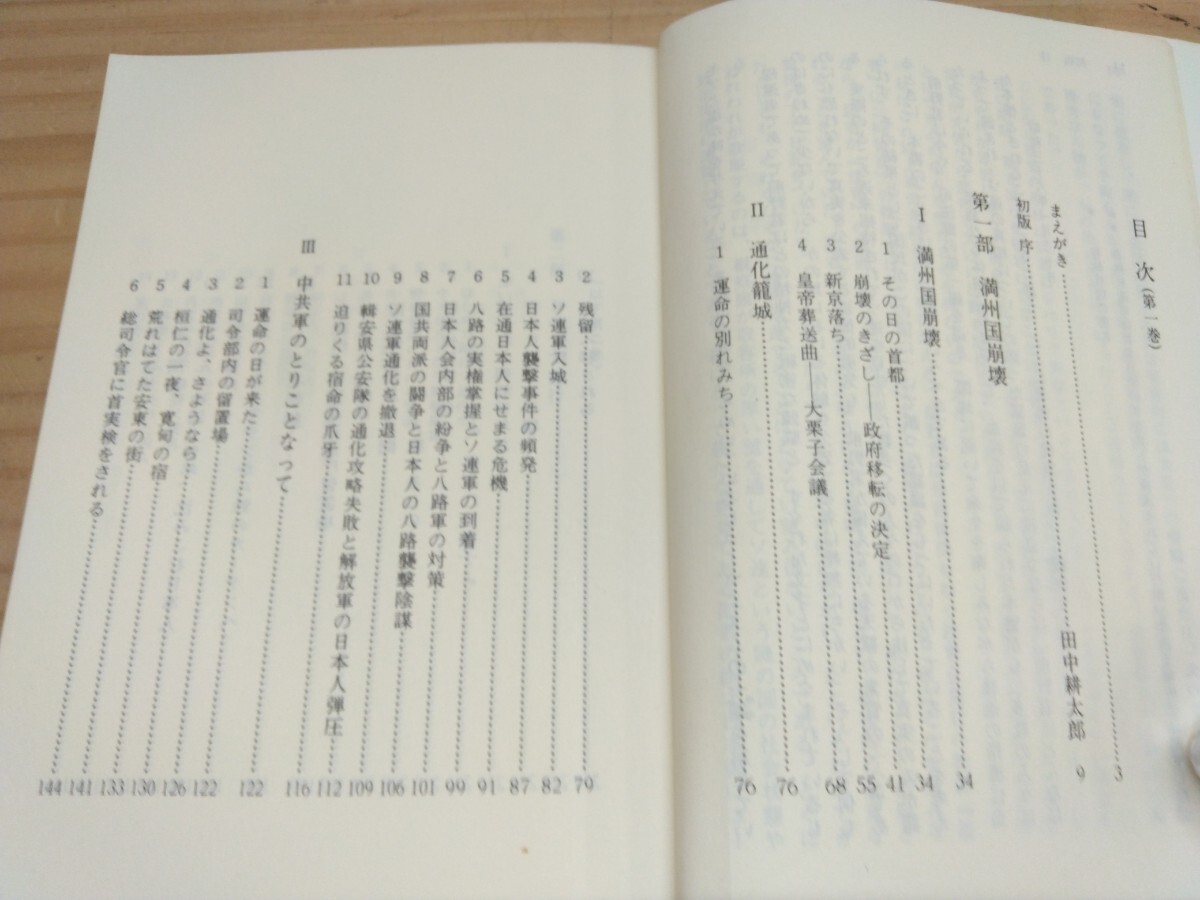 目次(第一巻)
まえがき……3
初版 序……田中耕太郎 9
第一部 満州国崩壊
Ⅰ 満州国崩壊……34
1 その日の首都……34
2 崩壊のきざし――政府移転の決定……41
3 新京落ち……55
4 皇帝葬送曲――大栗子会議……68
Ⅱ 通化籠城……76
1 運命の別れみち……76
2 残留……79
3 ソ連軍入城……82
4 日本人襲撃事件の頻発……87
5 在通日本人にせまる危機……91
6 八路の実権掌握とソ連軍の到着……99
7 日本人会内部の紛争と八路軍の対策……101
8 国共両派の闘争と日本人の八路襲撃陰謀……106
9 ソ連軍通化を撤退……109
10 輯安県公安隊の通化攻略失敗と解放軍の日本人弾圧……112
11 迫りくる宿命の爪牙……116
Ⅲ 中共軍のとりことなって……122
1 運命の日が来た……122
2 司令部内の留置場……126
3 通化よ、さようなら……130
4 桓仁の一夜、寛甸の宿……133
5 荒れはてた安東の街……141
6 総司令官に首実検をされる……144